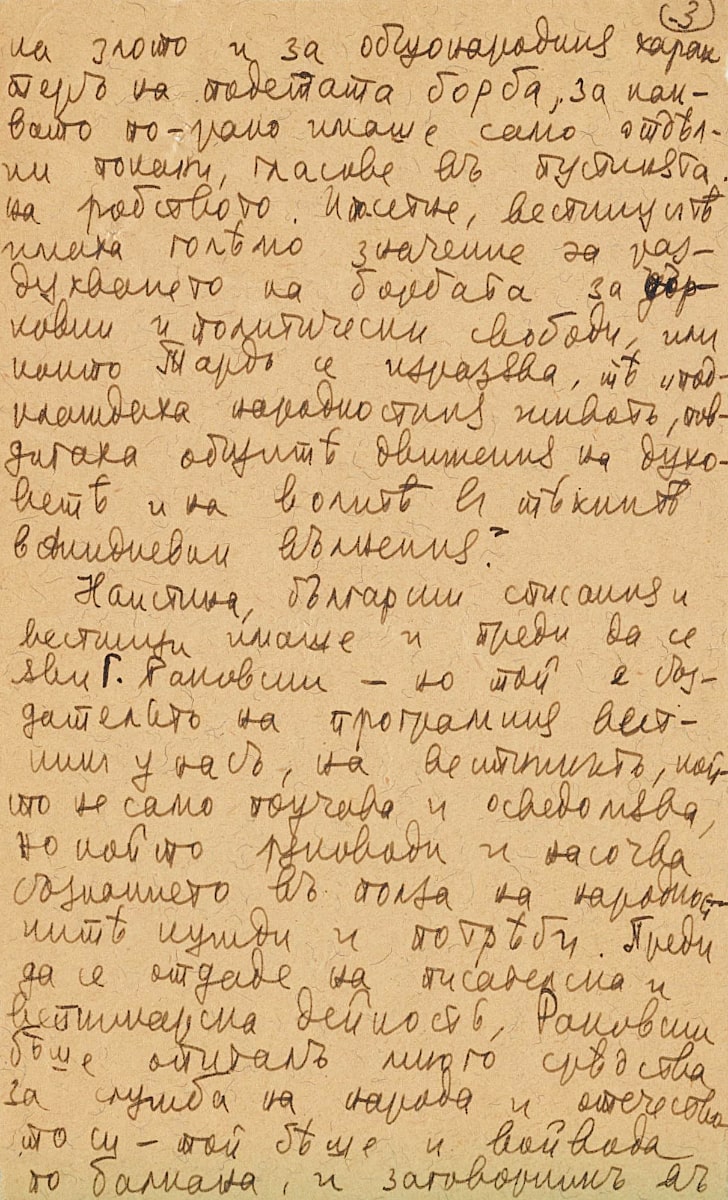 3
на злото и за общонародния харак
теръ на подетата борба, за как-
вато по-рано имаше само отдѣл-
ни покани, гласове въ пустинята
на робството. И сетне, вестницитѣ
имаха голѣмо значение за раз-
духването на борбата за цър-
ковни и политически свободи, или
както Тардъ се изразява, тѣ „под-
клаждаха народностния животъ, пов-
дигаха общитѣ движения на духо-
ветѣ и на волитѣ въ тѣхнитѣ
всѣкидневни вълнения."
Наистина, български списания и
вестници имаше и преди да се
яви Г. Раковски — но той е съз-
дательтъ на програмния вест-
никъ у насъ, на вестникътъ, кой-
то не само поучава и осведомява,
но който ржководи и насочва
съзнанието въ полза на народност-
нитѣ нужди и потрѣби. Преди
да се отдаде на писателска и
вестникарска дейность, Раковски
бѣше опиталъ много срѣдства
за служба на народа и отечество
то си — той бѣше и войвода
по балкана, и заговорникъ въ